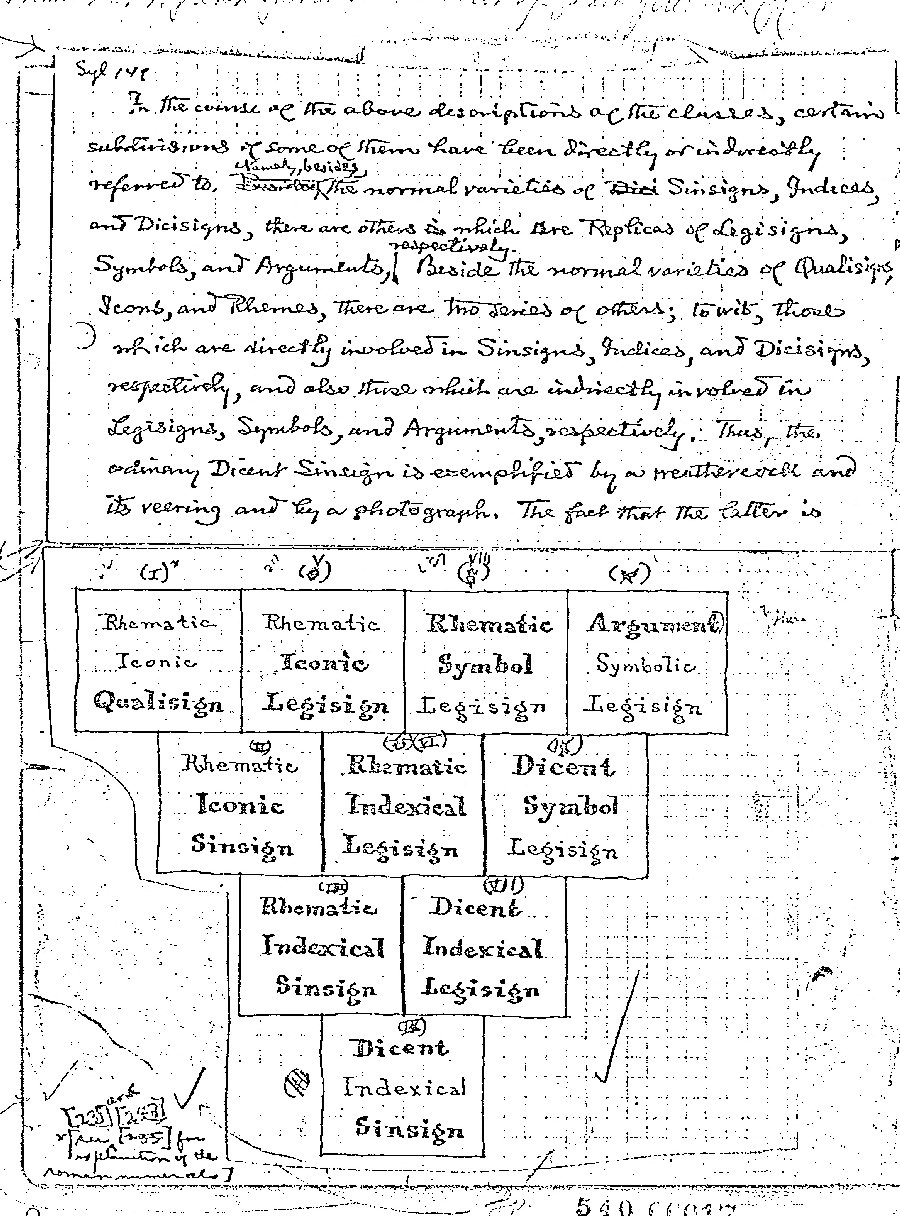 Syl 149
In the course of the above descriptions of the classes, certain
subdivisions of some of them have been directly or indirectly
Namely, besides
referred to. Besides the normal varieties of Dici Sinsigns, Indices,
and Dicisigns, there are others in which are Replicas of Legisigns,
respectively.
Symbols, and Arguments, Beside the normal varieties of Qualisigns,
Icons, and Rhemes, there are two series of others; to wit, those
which are directly involved in Sinsigns, Indices, and Dicisigns,
respectively, and also those which are indirectly involved in
Legisigns, Symbols, and Arguments, respectively. Thus, the
ordinary Dicent Sinsign is exemplified by a weathercock and
its veering and by a photograph. The fact that the latter is
(I) (V) (VIII) (X)
Rhematic Rhematic Rhematic Argument
Iconic Iconic Symbol Symbolic
Qualisign Legisign Legisign Legisign
(II) (VI) (IX)
Rhematic Rhematic Dicent
Iconic Indexical Symbol
Sinsign Legisign Legisign
(III) (VII)
Rhematic Dicent
Indexical Indexical
Sinsign Legisign
(IV)
Dicent
Indexical
Sinsign
and
[235] for
explanation of the
roman numerals]